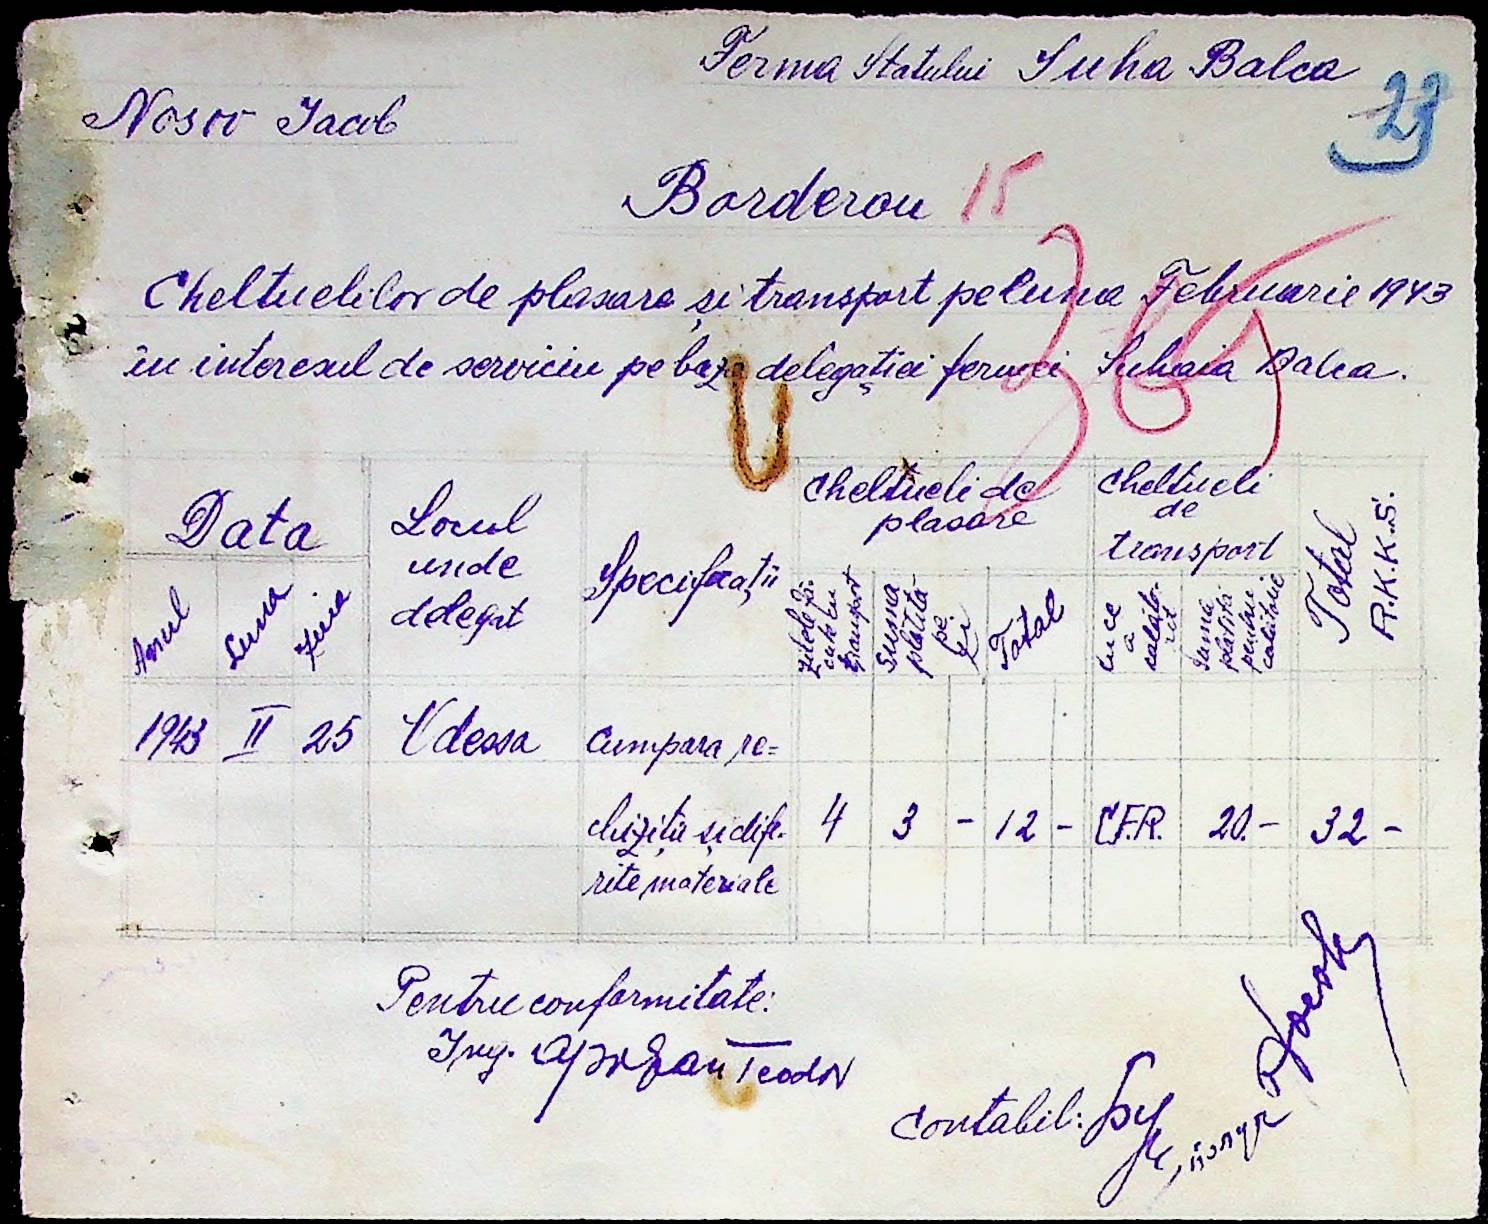 Ferma Statului Suha Balca
23
Nosov Jacob
Borderou 15
365
Cheltuelilor de plasare și transport pe luna Februarie 1943
în interesul de serviciu pe baza delegației fermei Suhaia Balca.
Data
Locul unde delegat
Specificații
Cheltueli de plasare
Cheltueli de transport
Total R.K.K.S.
Anul
Luna
Ziua
Suma platită pe zi
Total
cu ce a
Suma platită pentru calitorie
1943 II 25 Odessa cumpara re=
chizită și dife- 4 3 - 12 - C.F.R. 20.- 32 -
rite materiale
Pentru conformitate:
Ing. Teodor
Contabil: